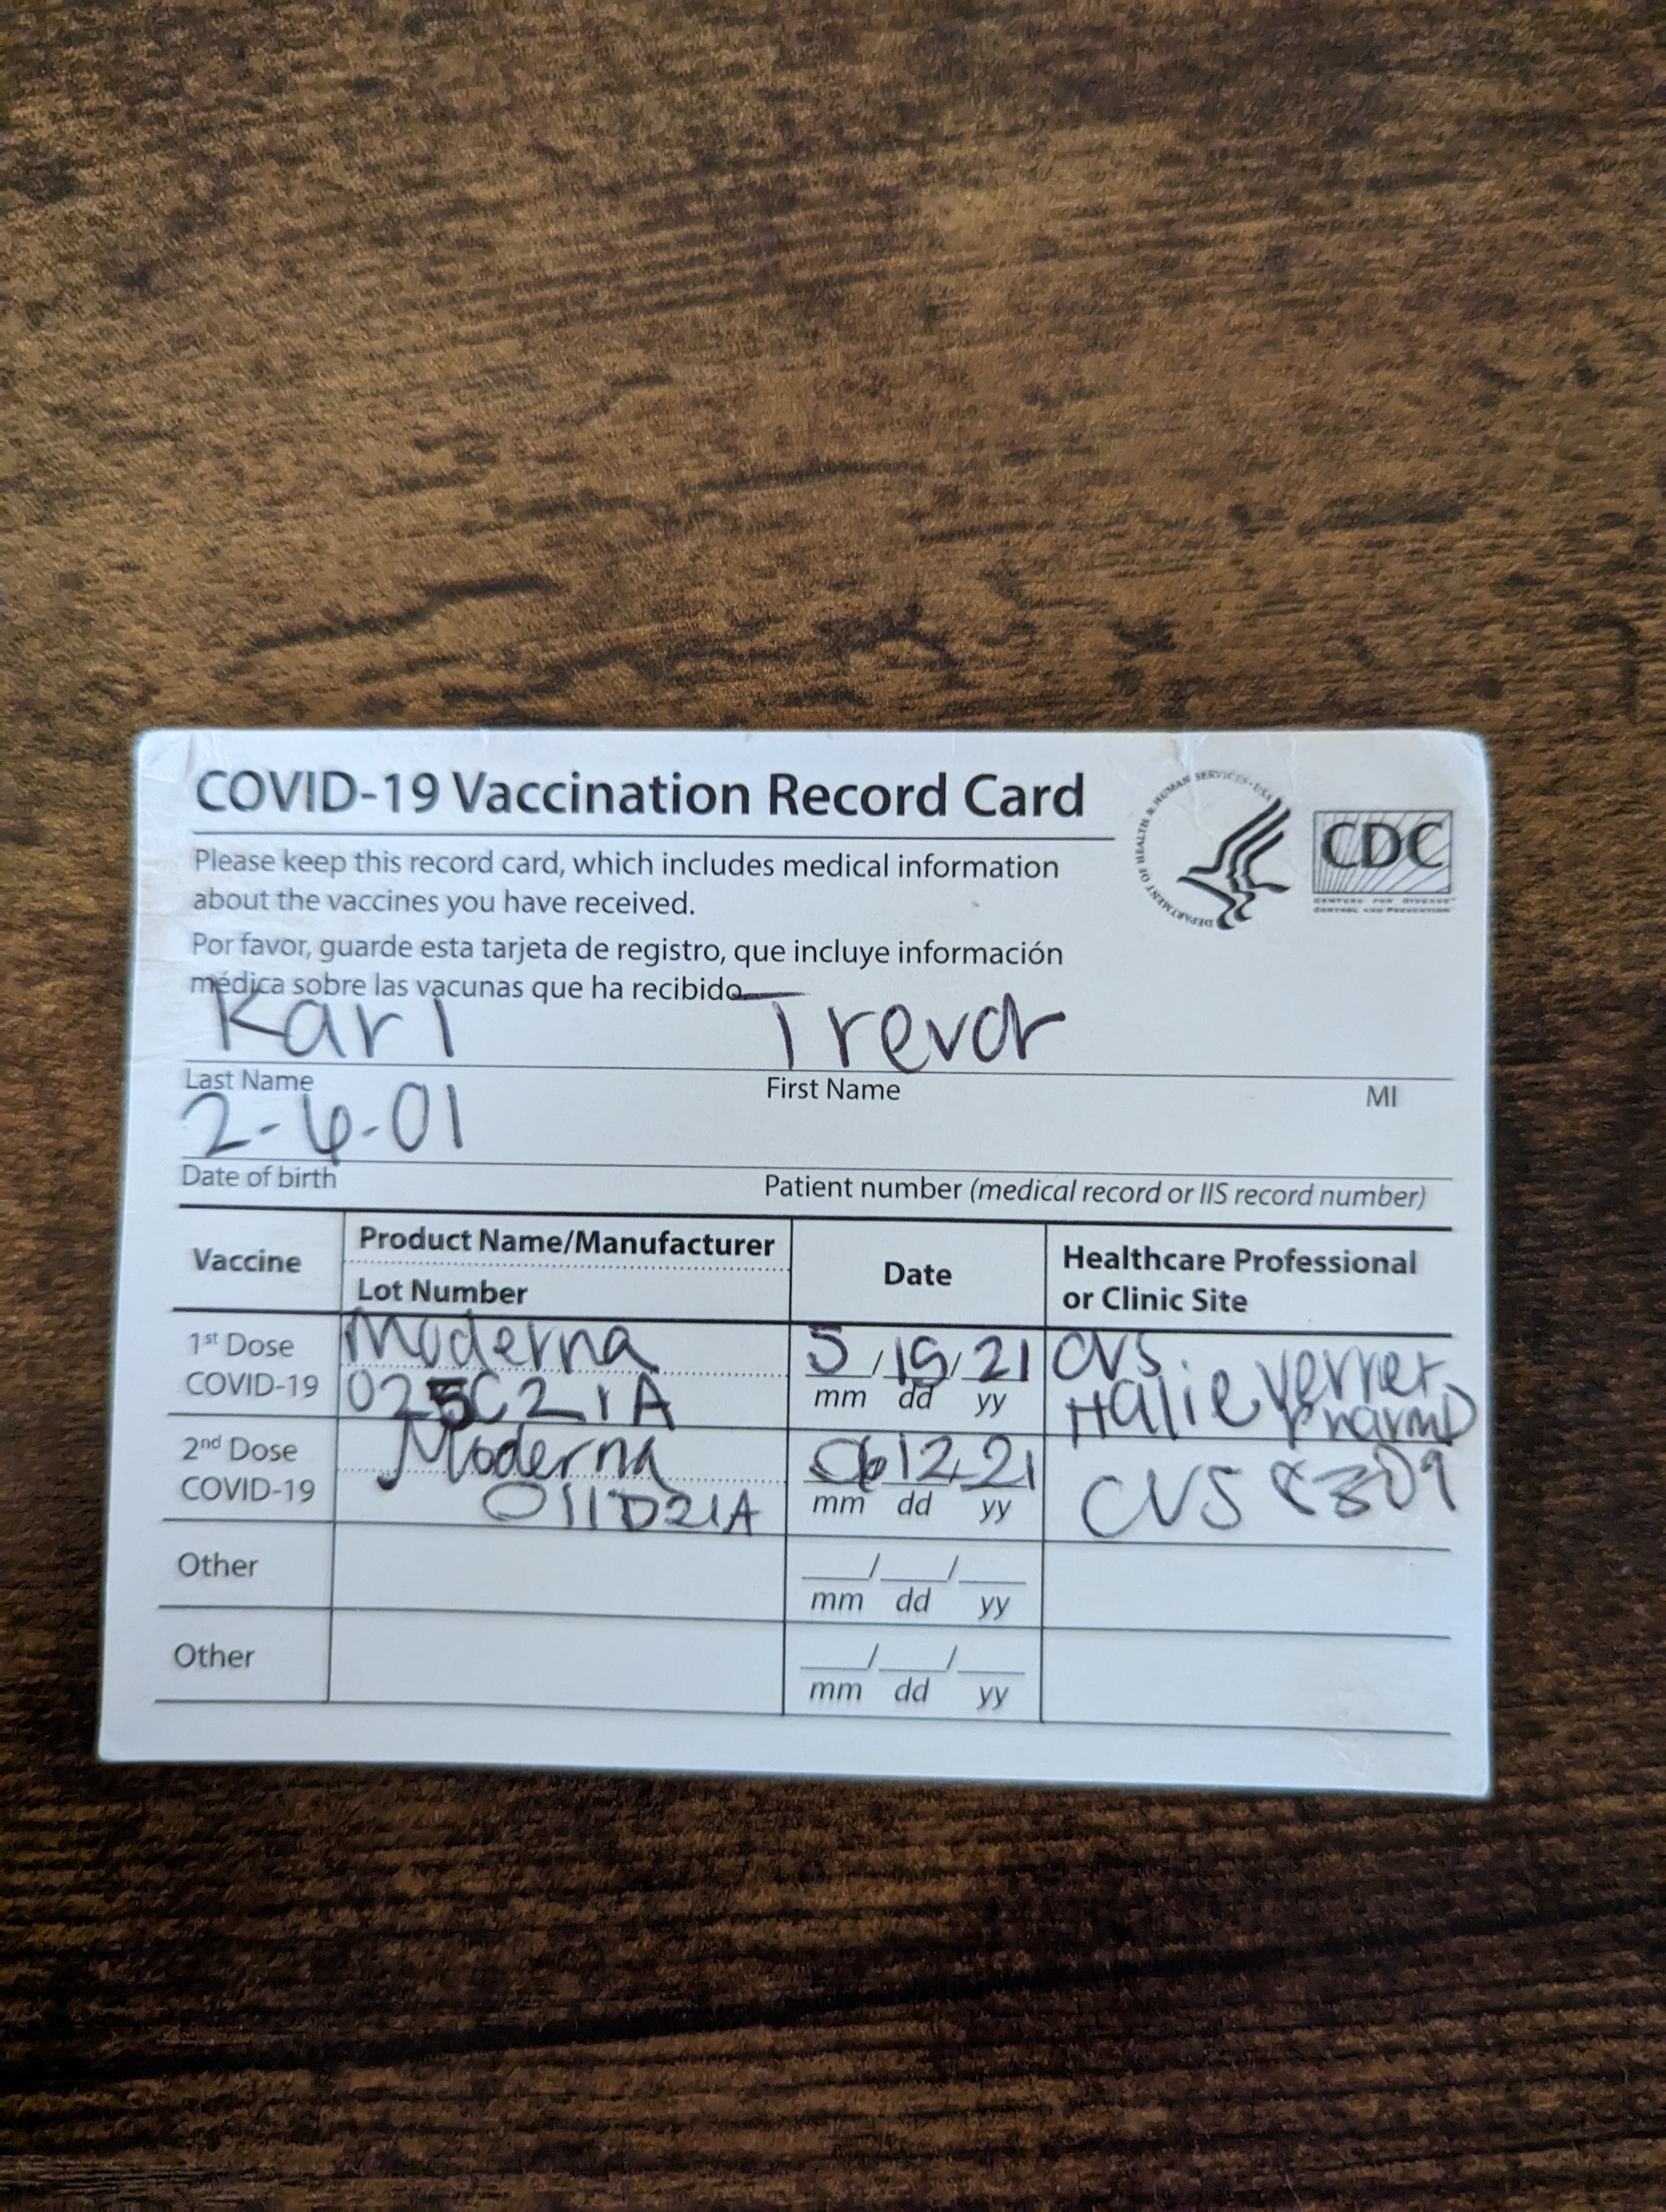 COVID-19 Vaccination Record Card
DEPARTMENT OF HEALTH & HUMAN SERVICES · USA
CDC
CENTERS FOR DISEASE™
CONTROL AND PREVENTION
Please keep this record card, which includes medical information
about the vaccines you have received.
Por favor, guarde esta tarjeta de registro, que incluye información
médica sobre las vacunas que ha recibido.
Karl Trevor
Last Name First Name MI
2-6-01
Date of birth Patient number (medical record or IIS record number)
Vaccine
Product Name/Manufacturer
Lot Number
Date
Healthcare Professional
or Clinic Site
1st Dose
COVID-19
Moderna
025C21A
5/15/21
mm dd yy
CVS
Halie Verret
PharmD
2nd Dose
COVID-19
Moderna
011D21A
06 12 21
mm dd yy
CVS
Other
/ /
mm dd yy
Other
/ /
mm dd yy